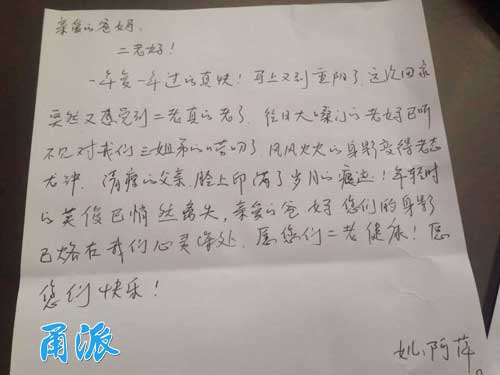 亲爱的爸妈:
二老好!
一年复一年过的真快!马上又到重阳了,这次回家
突然又感受到二老真的老了。往日大嗓门的老妈已听
不见对我们三姐弟的唠叨了,风风火火的身影变得老态
龙钟。清瘦的父亲脸上印满了岁月的痕迹!年轻时
的英俊已悄然离失,亲爱的爸妈您们的身影
已烙在我们心灵深处。愿您们二老健康!愿
您们快乐!
女儿:阿萍
甬派